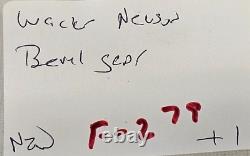 Wacker Neuson
Bevel gear
New +1